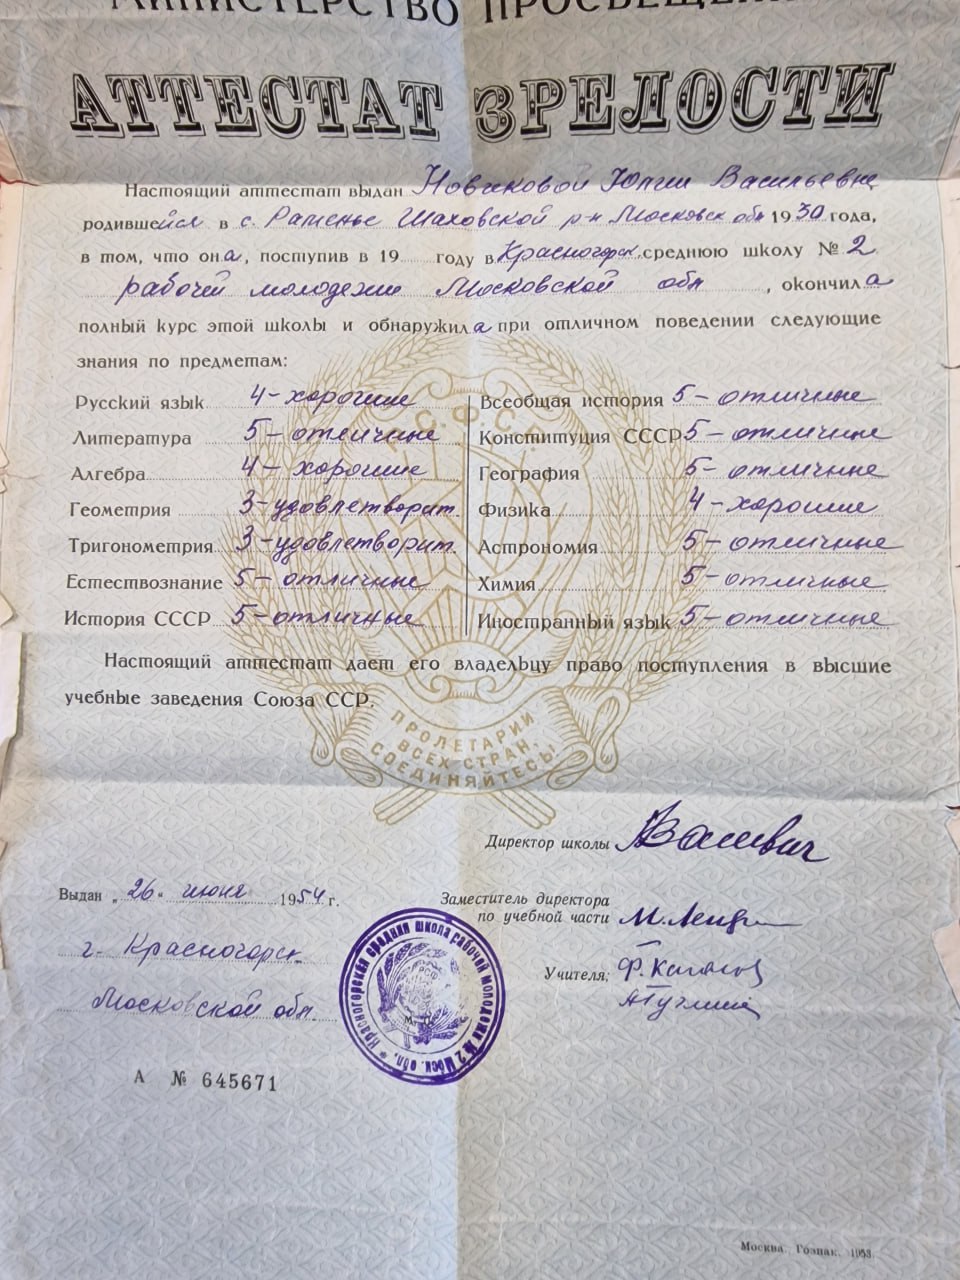 МИНИСТЕРСТВО ПРОСВЕЩЕНИ
АТТЕСТАТ ЗРЕЛОСТИ
Настоящий аттестат выдан Новиковой Юлии Васильевне
родившейся в с. Раменье Шаховской р-н Московск обл 1930 года,
в том, что она, поступив в 19 году в Красногорск. среднюю школу № 2
рабочей молодежи Московской обл, окончила
полный курс этой школы и обнаружила при отличном поведении следующие
знания по предметам:
Русский язык 4 - хорошие
Литература 5 - отличные
Алгебра 4 - хорошие
Геометрия 3 - удовлетворит.
Тригонометрия 3 - удовлетворит.
Естествознание 5 - отличные
История СССР 5 - отличные
Всеобщая история 5 - отличные
Конституция СССР 5 - отличные
География 5 - отличные
Физика 4 - хорошие
Астрономия 5 - отличные
Химия 5 - отличные
Иностранный язык 5 - отличные
Р.С.Ф.С.Р.
Настоящий аттестат дает его владельцу право поступления в высшие
учебные заведения Союза ССР.
ПРОЛЕТАРИИ
ВСЕХ СТРАН,
СОЕДИНЯЙТЕСЬ!
Директор школы
Выдан „26" июня 1954 г.
г. Красногорск
Московской обл.
Заместитель директора
по учебной части
Учителя:
Красногорская средняя школа рабочей молодежи № 2 Моск. обл. *
А № 645671
Москва. Гознак. 1953.